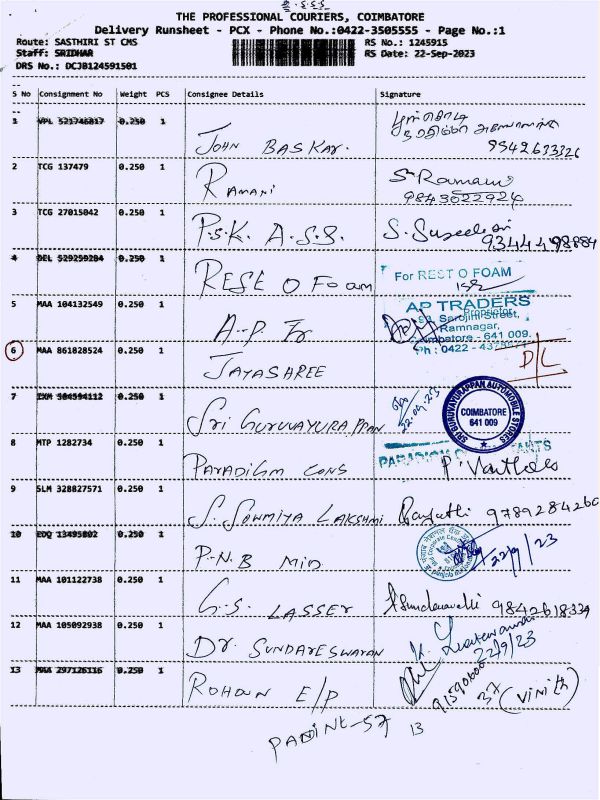 THE PROFESSIONAL COURIERS, COIMBATORE
Delivery Runsheet - PCX - Phone No.:0422-3505555 - Page No.:1
Route: SASTHIRI ST CMS
RS No.: 1245915
Staff: SRIDHAR
RS Date: 22-Sep-2023
DRS No.: DCJB124591501
S No Consignment No Weight PCS Consignee Details Signature
1 VPL 521746017 0.250 1 JOHN BASKAR.
9942633326
2 TCG 137479 0.250 1 RAMANI S. Ramani
9843022924
3 TCG 27015042 0.250 1 P.S.K. A.S.S. S. Suseela
9344498884
4 DEL 529259204 0.250 1 RESE O FOAM
For REST O FOAM
5 MAA 104132549 0.250 1 A.P. Tr
AP TRADERS
Proprietor
92, Sarojini Street,
Ramnagar,
Coimbatore - 641 009.
Ph : 0422 -
6 MAA 861828524 0.250 1 JAYASHREE D/L
7 0.250 1 SRI GURUVAYURAPPAN
22.09.23
SRI GURUVAYURAPPAN AUTOMOBILE STORES
COIMBATORE
641 009
8 MTP 1282734 0.250 1 PARADIGM CONS
PARADIGM CONSULTANTS
9 SLM 328827571 0.250 1 S. SOWMIYA LAKSHMI 9789284260
10 EDQ 13495802 0.250 1 P.N.B MID
22/9/23
11 MAA 101122738 0.250 1 G.S. LASSER 9842618334
12 MAA 105092938 0.250 1 DR. SUNDARESWARAN
22/9/23
13 MAA 297126116 0.250 1 ROHAN E/P
(Vinith)
13